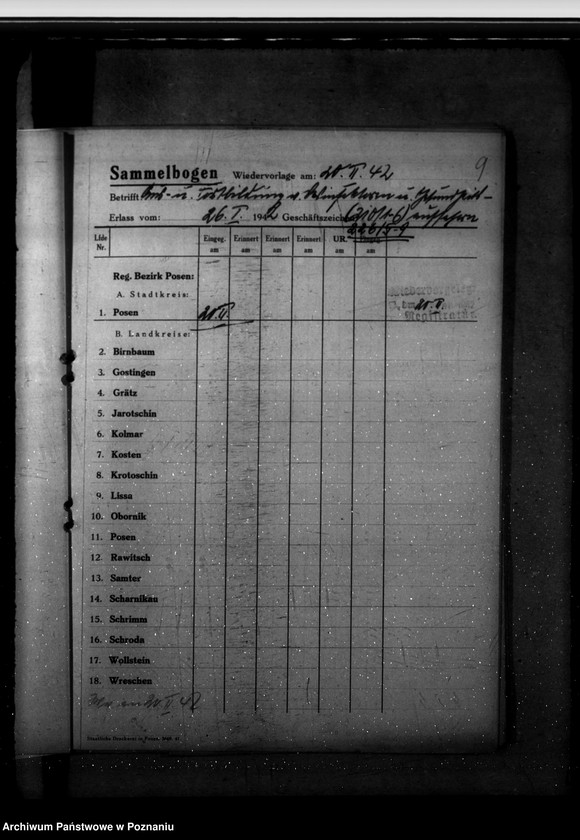 9
Sammelbogen Wiedervorlage am: 20. II. 42
Betrifft Aus- u. Fortbildung v. Desinfektoren u. Gesundheits-
Erlass vom: 26. I. 1942 Geschäftszeich aufsehern
226/5-9
Lfde Nr. Eingeg. am Erinnert am Erinnert am Erinnert am UR. am am
Reg. Bezirk Posen:
A. Stadtkreis:
1. Posen 20. II.
Registratur
B. Landkreise:
2. Birnbaum
3. Gostingen
4. Grätz
5. Jarotschin
6. Kolmar
7. Kosten
8. Krotoschin
9. Lissa
10. Obornik
11. Posen
12. Rawitsch
13. Samter
14. Scharnikau
15. Schrimm
16. Schroda
17. Wollstein
18. Wreschen
Archiwum Państwowe w Poznaniu